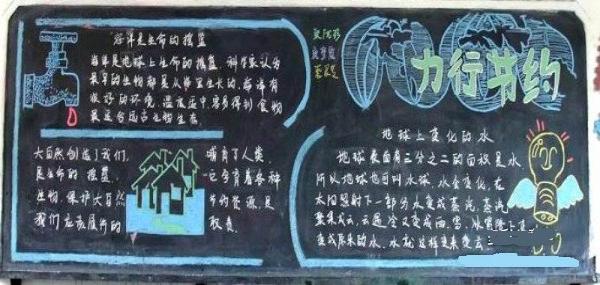 海洋是生命的摇篮
海洋是地球上生命的摇篮 科学家认为
最早的生物都是从海里生长的,海洋有
很好的环境,温度适中,容易得到食物
最适合
大自然创造了我们,
是生命的摇篮,
生物,保护大自然
我们应该履行的
哺育了人类,
它孕育着各种
节约资源,是
职责.
力行节约
地球上变化的水
地球表面有三分之二的面积是水
所以地球也可叫水球,水会变化,在
太阳照射下一部分水变成蒸汽,蒸汽
聚集成云,云遇冷又变成雨、雪、
变成原来的水,水就这样变来变去